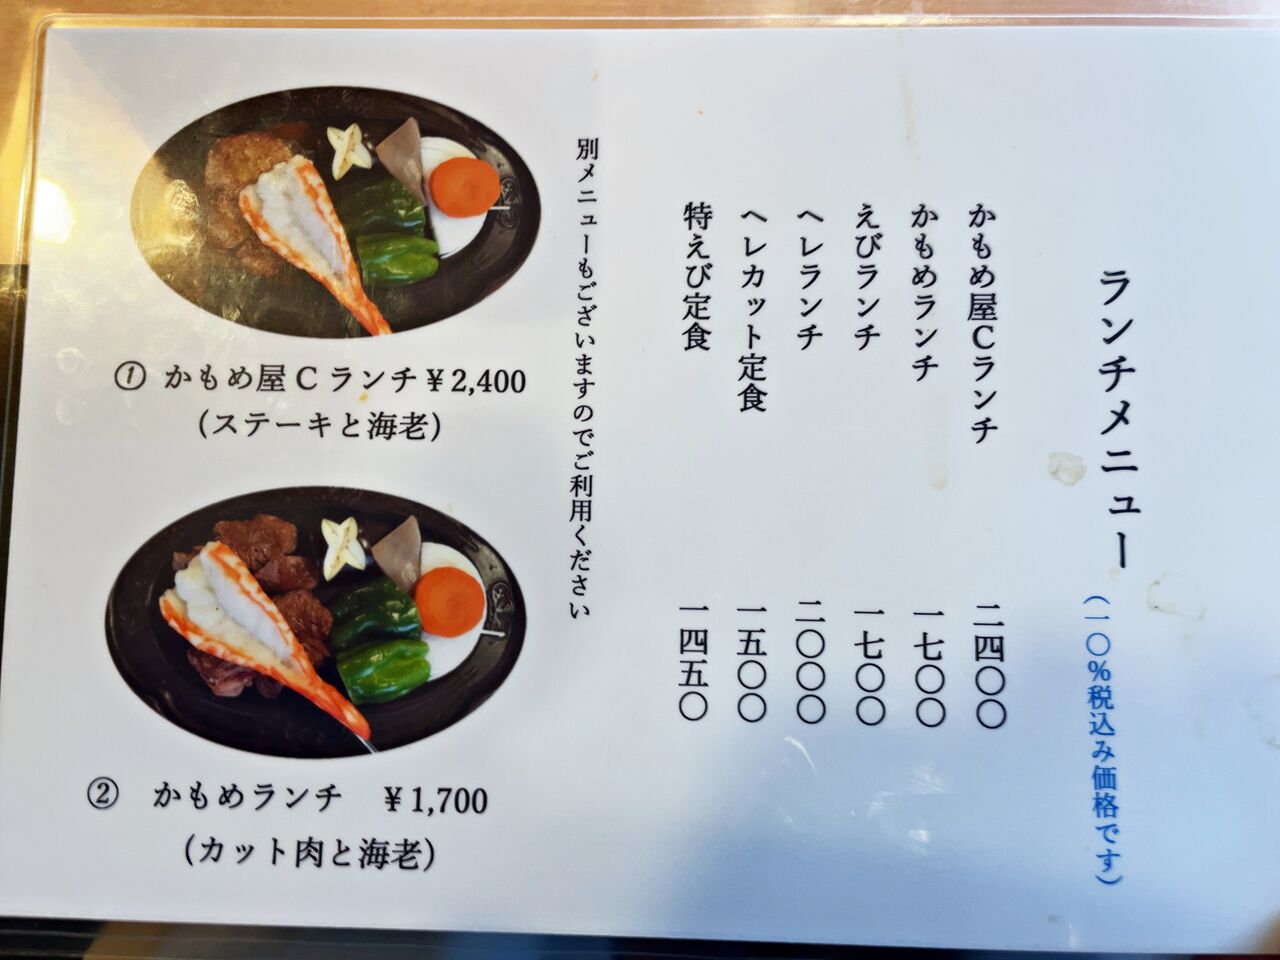 ランチメニュー
(一〇%税込み価格です)
かもめ屋Cランチ 二四〇〇
かもめランチ 一七〇〇
えびランチ 一七〇〇
ヘレランチ 二〇〇〇
ヘレカット定食 一五〇〇
特えび定食 一四五〇
別メニューもございますのでご利用ください
① かもめ屋Cランチ¥2,400
(ステーキと海老)
② かもめランチ ¥1,700
(カット肉と海老)